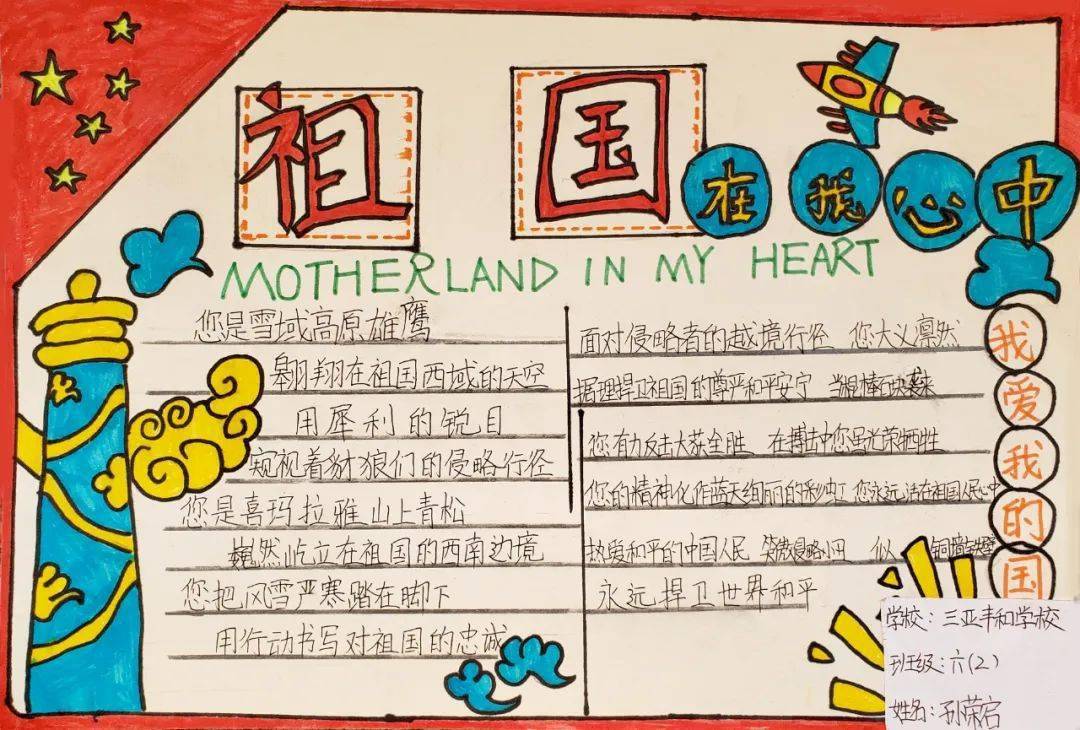 祖国在我心中
MOTHERLAND IN MY HEART
您是雪域高原雄鹰
翱翔在祖国西域的天空
用犀利的锐目
窥视着豺狼们的侵略行径
您是喜玛拉雅山上青松
巍然屹立在祖国的西南边境
您把风雪严寒踏在脚下
用行动书写对祖国的忠诚
面对侵略者的越境行径 您大义凛然
据理捍卫祖国的尊严和平安宁 当棍棒石块袭来
您有力反击大获全胜 在搏击中您虽光荣牺牲
您的精神化作蓝天绚丽的彩虹 您永远活在祖国人民心中
热爱和平的中国人民 笑傲侵略小丑 似 铜墙铁壁
永远捍卫世界和平
我爱我的国
学校:三亚丰和学校
班级:六(2)
姓名:孙荣启